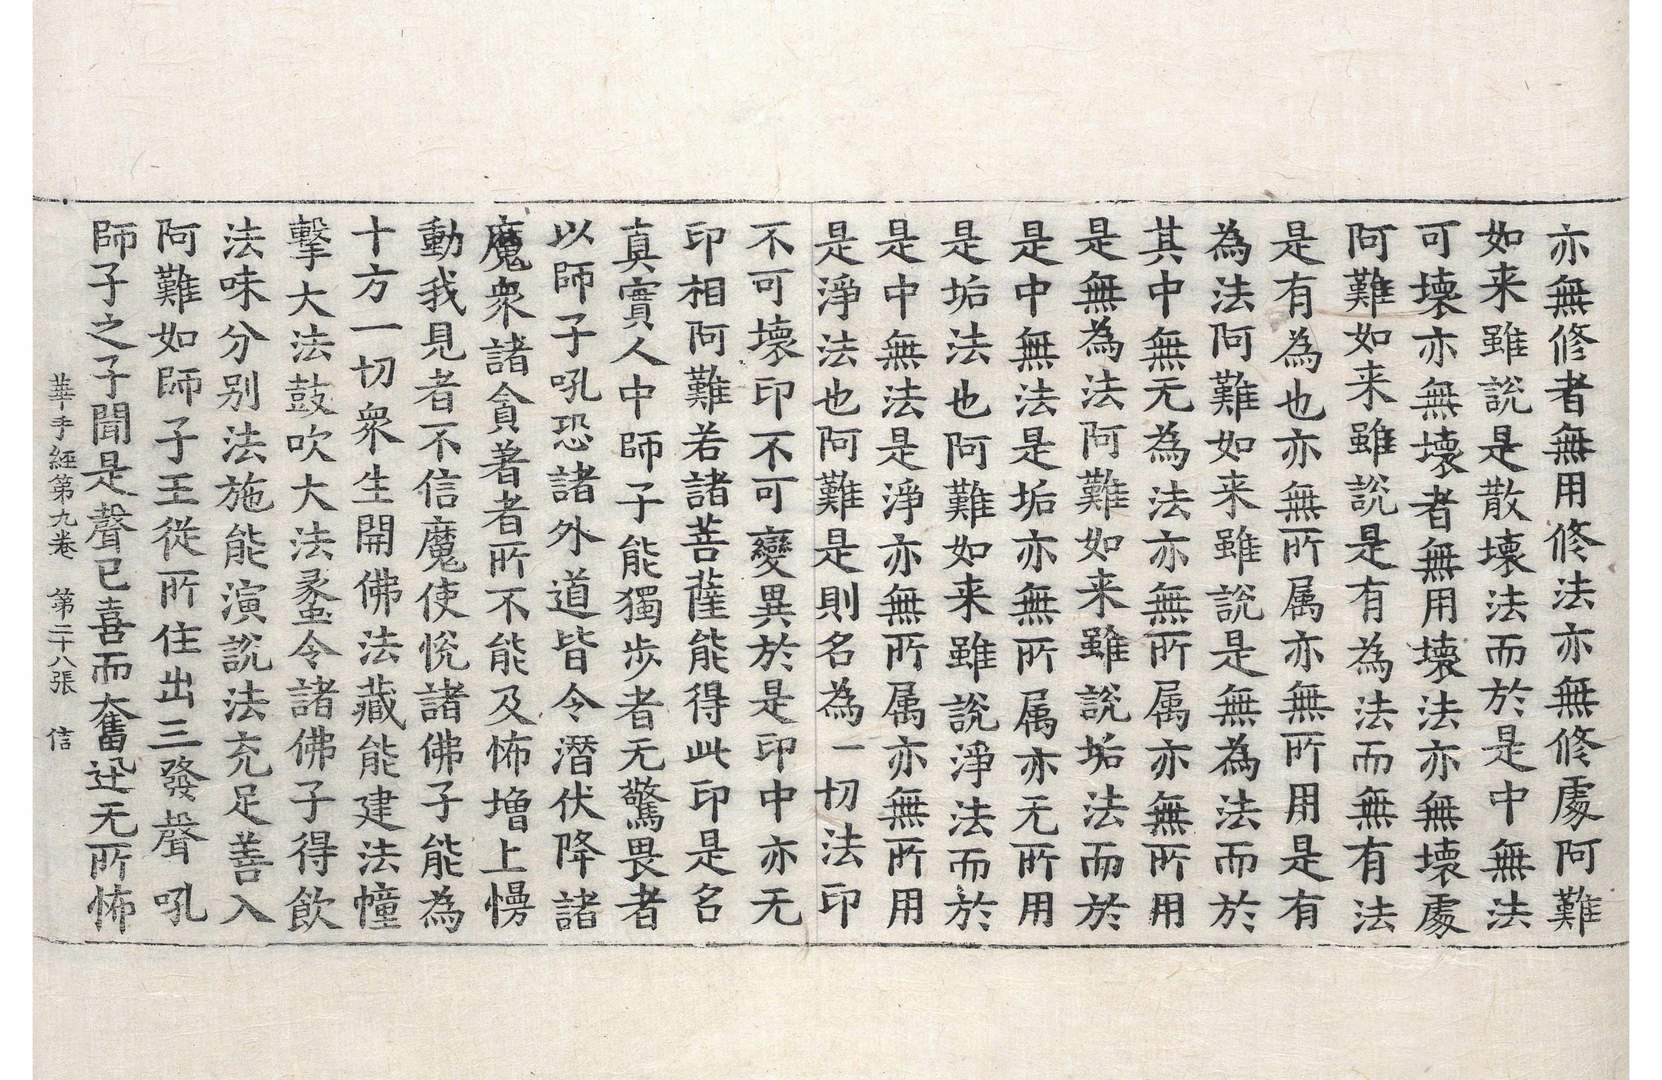 亦無修者無用修法亦無修處阿難
如来雖說是散壞法而於是中無法
可壞亦無壞者無用壞法亦無壞處
阿難如来雖說是有為法而無有法
是有為也亦無所属亦無所用是有
為法阿難如来雖說是無為法而於
其中無无為法亦無所属亦無所用
是無為法阿難如来雖說垢法而於
是中無法是垢亦無所属亦无所用
是垢法也阿難如来雖說淨法而於
是中無法是淨亦無所属亦無所用
是淨法也阿難是則名為一切法印
不可壞印不可變異於是印中亦无
印相阿難若諸菩薩能得此印是名
真實人中師子能獨步者无驚畏者
以師子吼恐諸外道皆令潛伏降諸
魔衆諸貪著者所不能及怖增上慢
動我見者不信魔使悅諸佛子能為
十方一切衆生開佛法藏能建法幢
擊大法鼓吹大法蠡令諸佛子得飲
法味分别法施能演說法充足善入
阿難如師子王從所住出三發聲吼
師子之子聞是聲已喜而奮迅无所怖
華手經第九卷　第二十八張　信